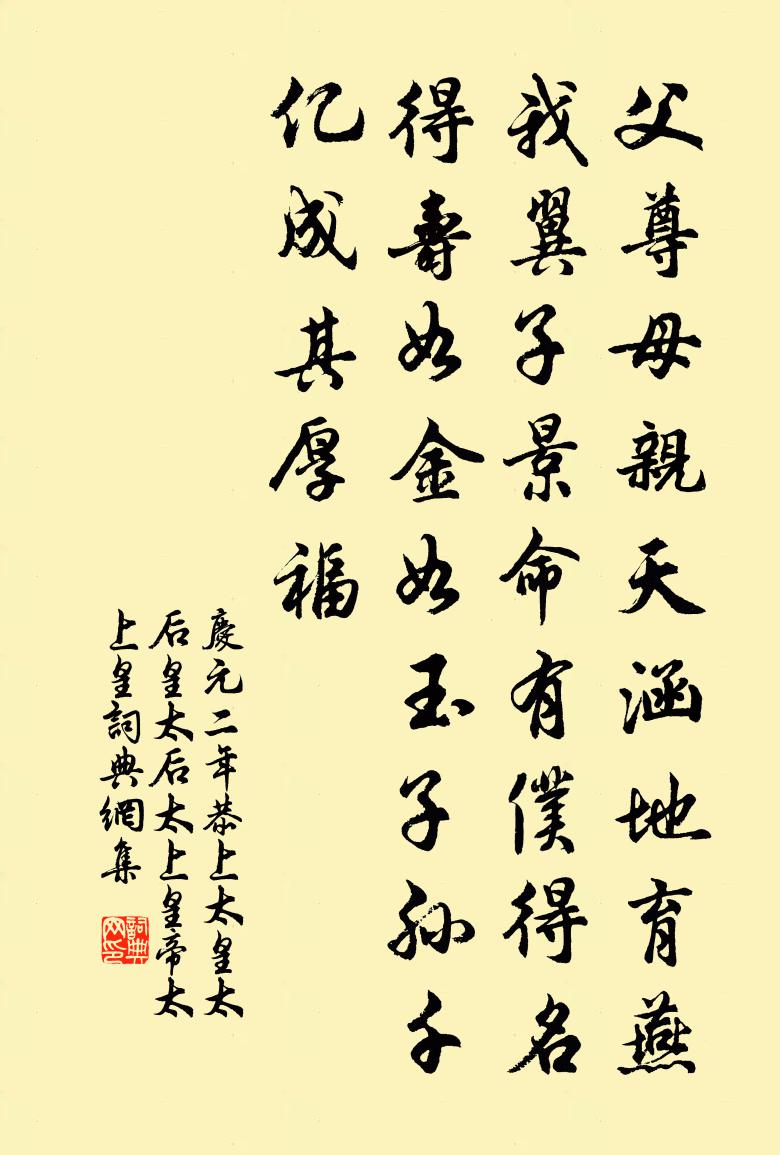 父尊母親天涵地育燕
我翼子景命有僕得名
得壽如金如玉子孫千
亿成其厚福
慶元二年恭上太皇太
后皇太后太上皇帝太
上皇詞典網集
詞典
网印